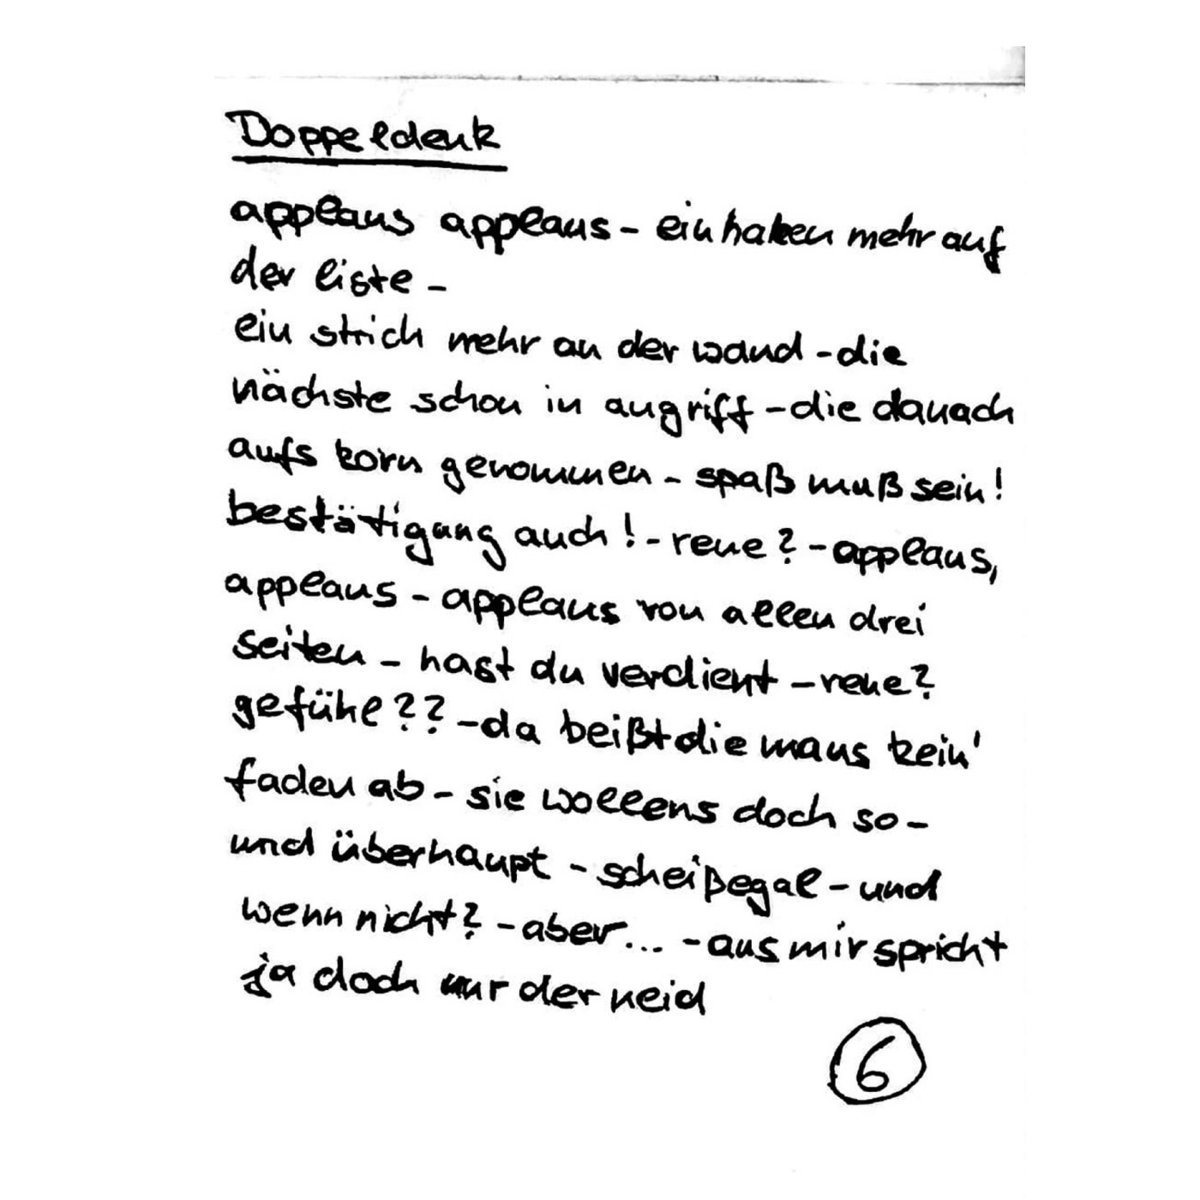 Doppeldenk
applaus applaus – ein haken mehr auf
der liste –
ein strich mehr an der wand – die
nächste schon in angriff – die danach
aufs korn genommen – spaß muß sein!
bestätigung auch! – reue? – applaus,
applaus – applaus von allen drei
seiten – hast du verdient – reue?
gefühl?? – da beißt die maus kein'
faden ab – sie wollens doch so –
und überhaupt – scheißegal – und
wenn nicht? – aber... – aus mir spricht
ja doch nur der neid
6